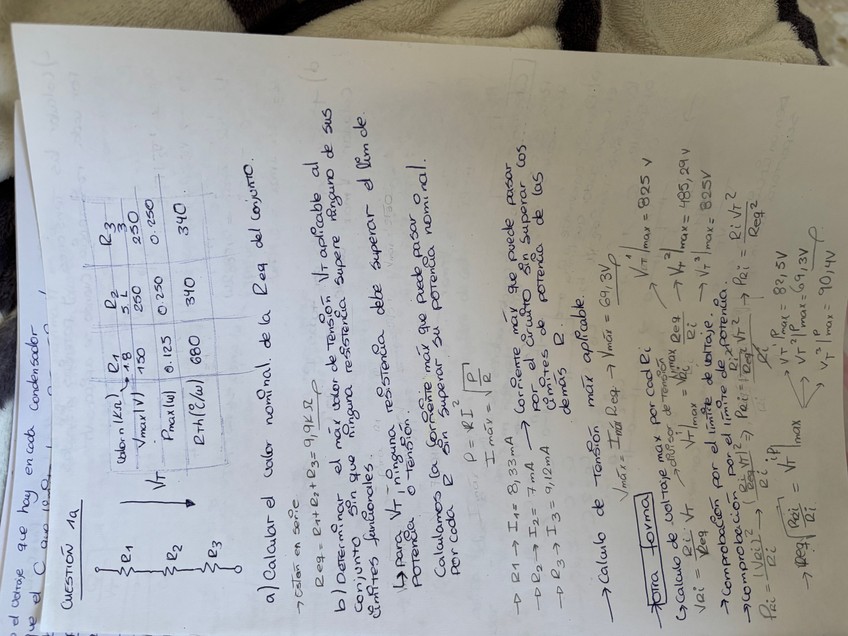 o el voltaje que hay en cada condensador
CUESTIÓN 1a
R1
R2
R3
VT
R1 R2 R3
Valor n (KΩ) 1.8 5.1 3
Vmax (V) 150 250 250
Pmax (W) 0.125 0.250 0.250
Rth (°C/W) 680 340 340
a) Calcular el valor nominal de la Req del conjunto.
→ Están en serie
Req = R1 + R2 + R3 = 9,9kΩ
b) Determinar el máx valor de tensión VT aplicable al
conjunto sin que ninguna resistencia supere ninguno de sus
límites funcionales.
↳ para VT, ninguna resistencia debe superar el lím de
potencia o tensión.
Calculamos la corriente máx que puede pasar
por cada R sin superar su potencia nominal.
P = RI²
Imáx = √P/R
→ R1 → I1 = 8,33mA
→ R2 → I2 = 7mA → Corriente máx que puede pasar
→ R3 → I3 = 9,12mA por el circuito sin superar los
límites de potencia de las
demás R.
→ Calculo de tensión máx aplicable.
Vmáx = Imáx Req → Vmáx = 69,3V
→ Otra forma
↳ Calculo de voltaje máx por cada Ri
VRi = Ri/Req VT → divisor de tensión
VT|max = VRi max Req/Ri → VT¹|max = 825 V
→ VT²|max = 485,29V
→ VT³|max = 825V
→ Comprobación por el límite de voltaje.
→ Comprobación por el límite de potencia.
PRi = (VRi)²/Ri → (Ri/Req VT)²/Ri ⇒ PRi = Ri/Req² VT² → PRi = Ri VT²/Req²
→ Req √PRi/Ri = VT|max
VT¹|P max = 82,5V
VT²|P max = 69,3V
VT³|P max = 90,4V